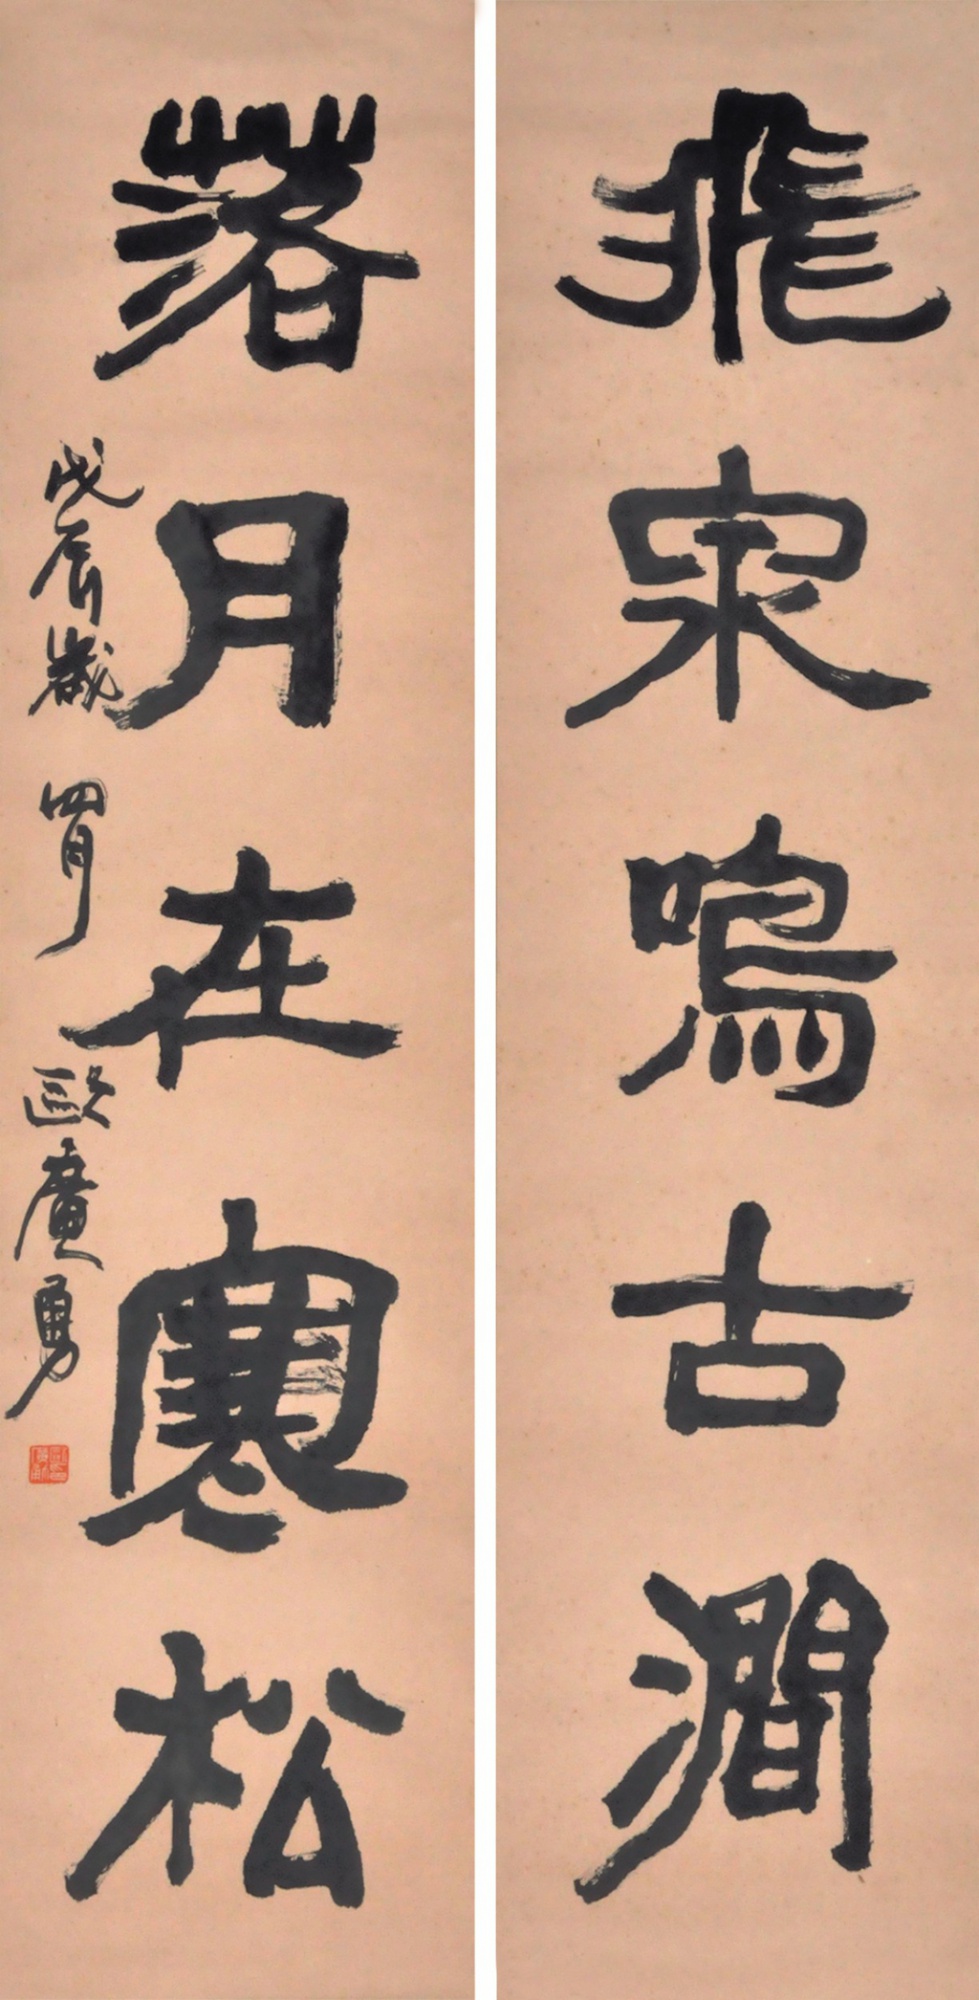 飛泉鳴古澗
落月在寒松
戊辰歲四月歐廣勇